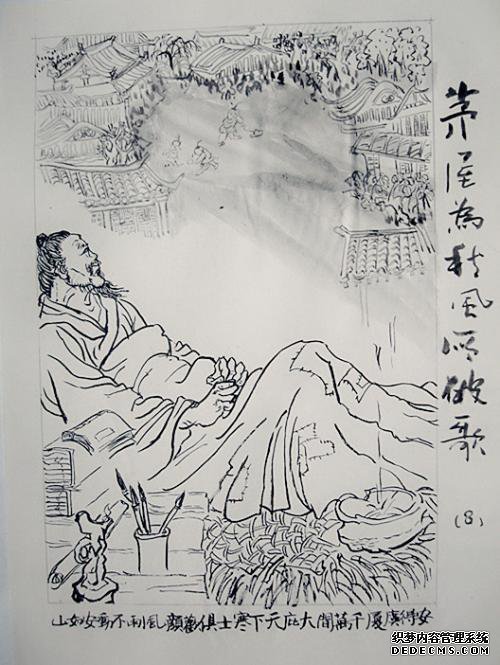 茅屋為秋風所破歌
(8)
安得廣厦千萬間大庇天下寒士俱歡顏風雨不動安如山
织梦内容管理系统
DEDECMS.COM